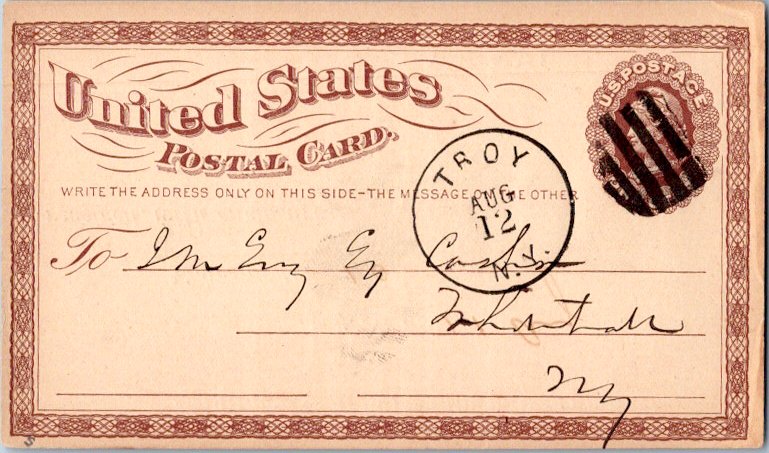 United States
U.S. POSTAGE
POSTAL CARD.
WRITE THE ADDRESS ONLY ON THIS SIDE-THE MESSAGE ON THE OTHER
TROY
AUG
12
N.Y.
To
Esq
Whitehall
NY